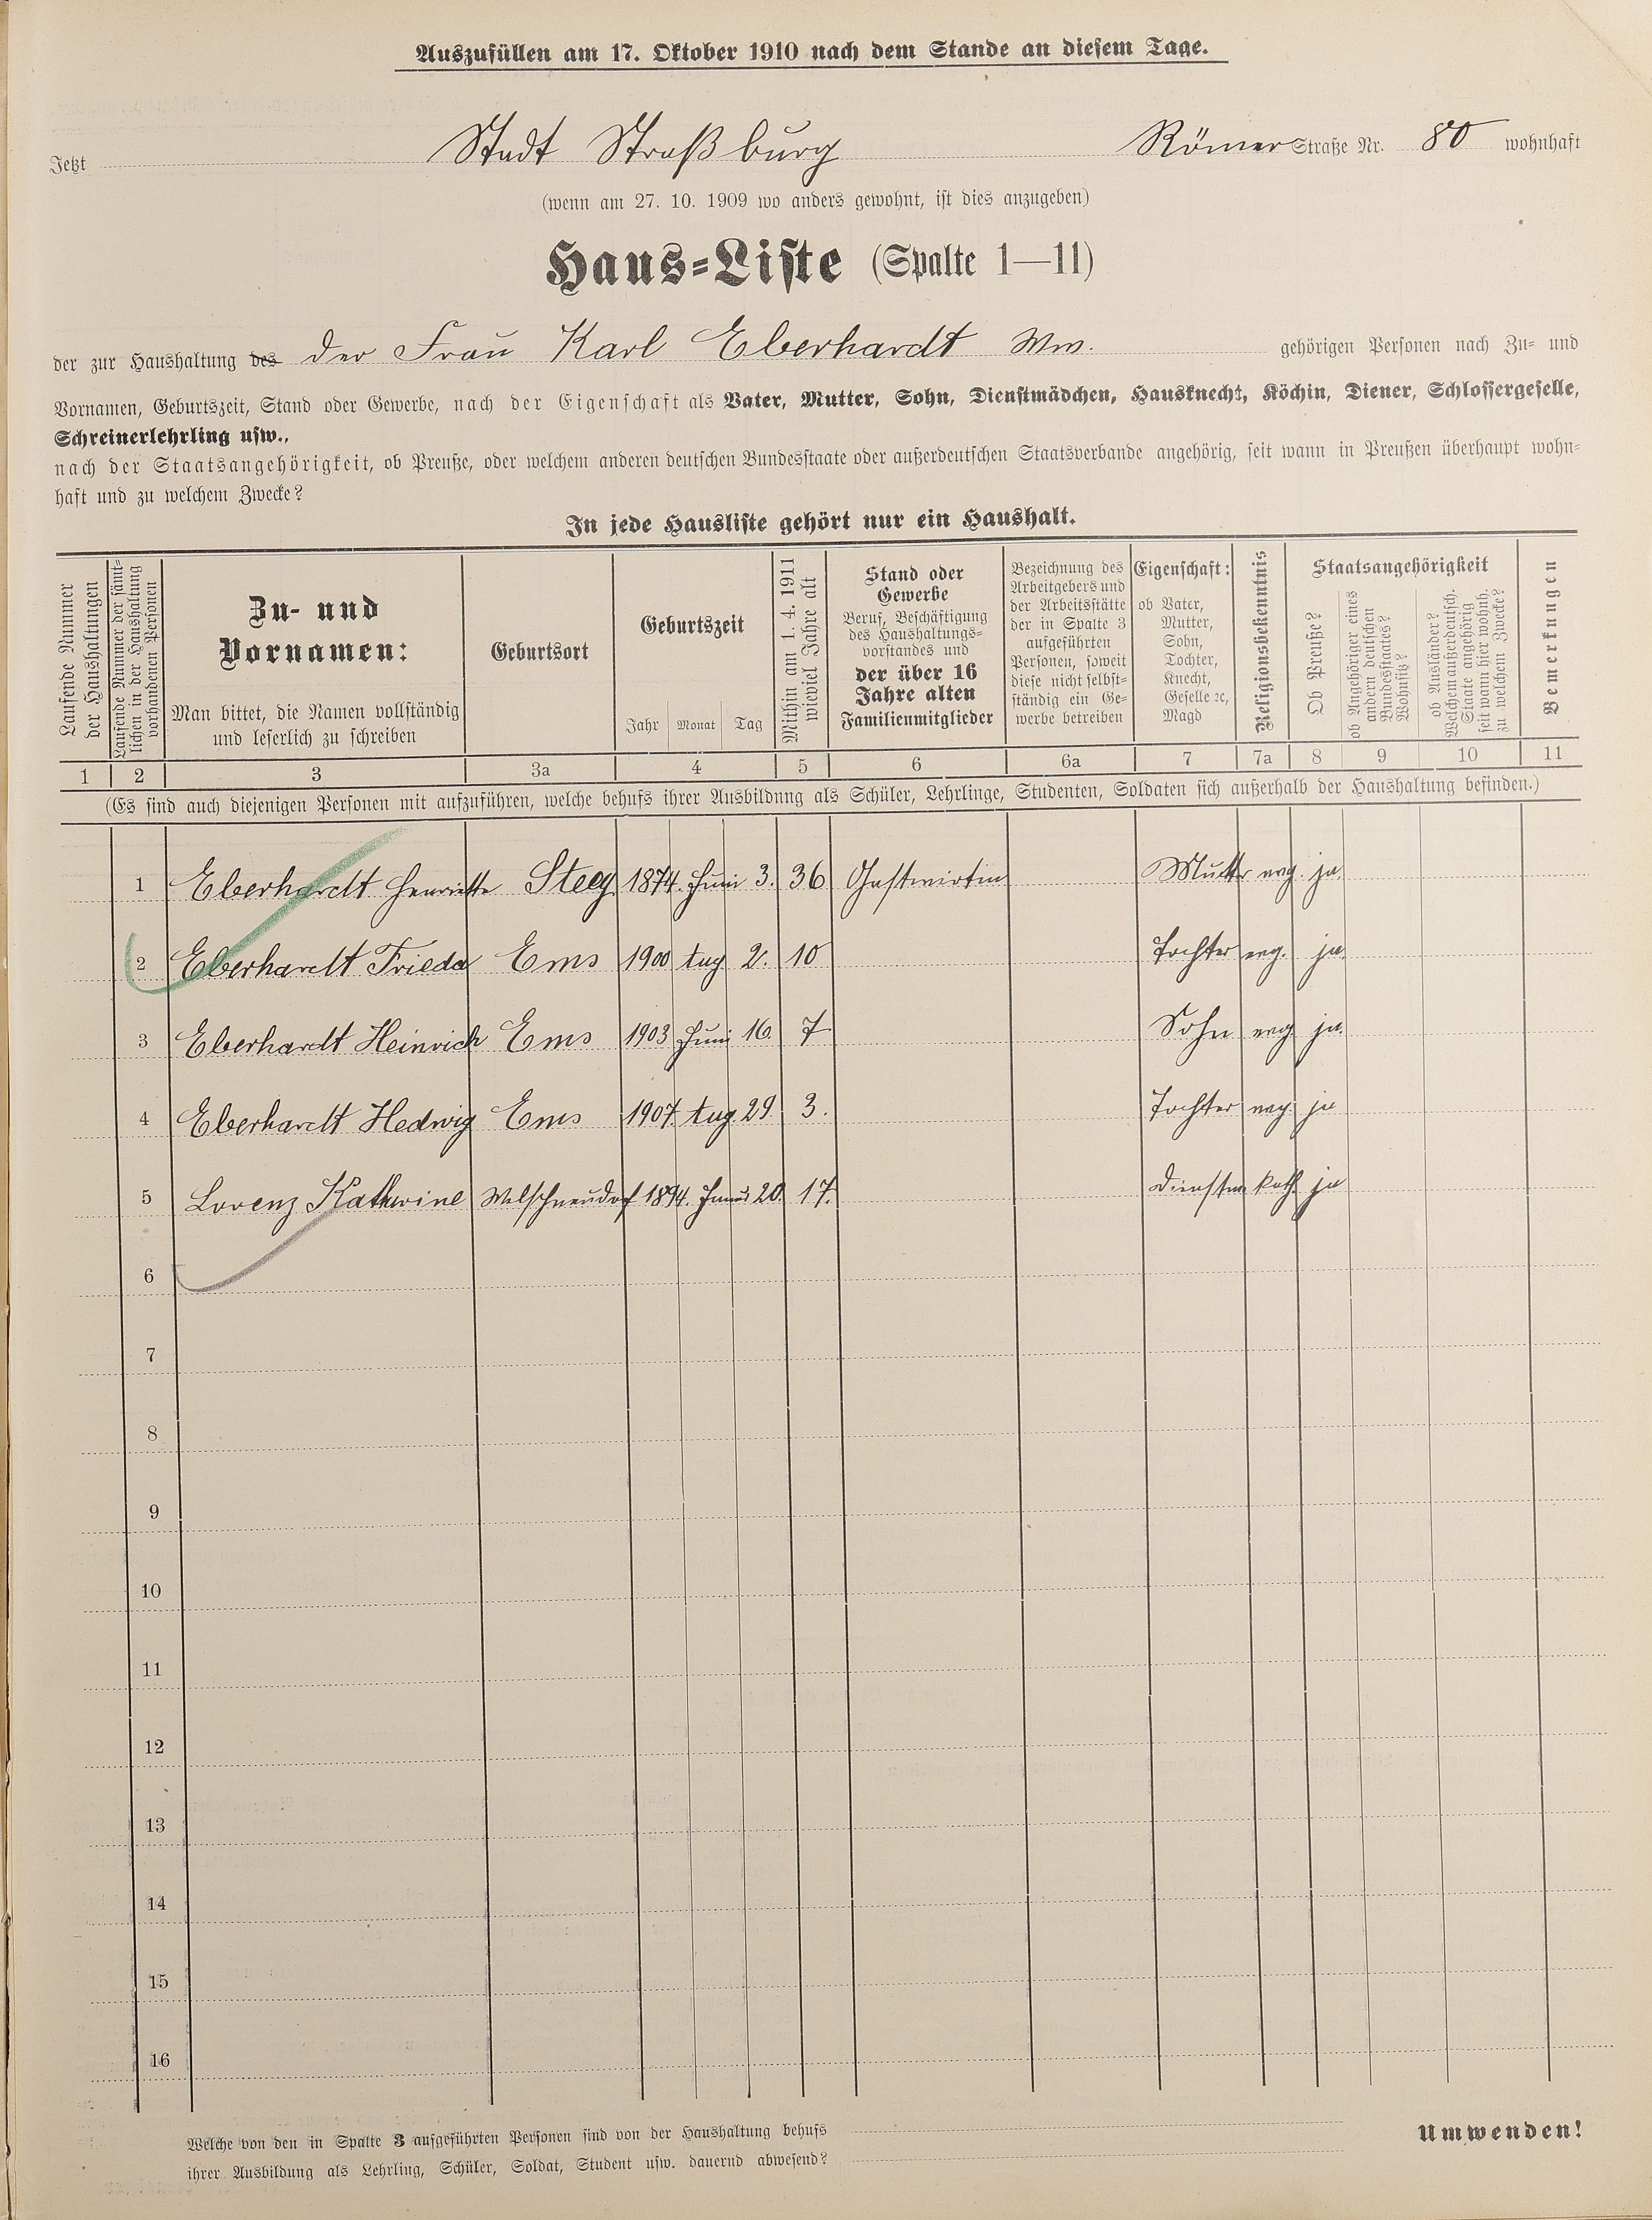 Auszufüllen am 17. Oktober 1910 nach dem Stande an diesem Tage.
Jetzt Stadt Straßburg Römer Straße Nr. 80 wohnhaft
(wenn am 27. 10. 1909 wo anders gewohnt, ist dies anzugeben)
Haus-Liste (Spalte 1—11)
der zur Haushaltung des der Frau Karl Eberhardt Ww. gehörigen Personen nach Zu- und
Vornamen, Geburtszeit, Stand oder Gewerbe, nach der Eigenschaft als Vater, Mutter, Sohn, Dienstmädchen, Hausknecht, Köchin, Diener, Schlossergeselle,
Schreinerlehrling usw.,
nach der Staatsangehörigkeit, ob Preuße, oder welchem anderen deutschen Bundesstaate oder außerdeutschen Staatsverbande angehörig, seit wann in Preußen überhaupt wohn-
haft und zu welchem Zwecke?
In jede Hausliste gehört nur ein Haushalt.
Laufende Nummer
der Haushaltungen
Laufende Nummer der sämt-
lichen in der Haushaltung
vorhandenen Personen
Zu- und
Vornamen:
Man bittet, die Namen vollständig
und leserlich zu schreiben
Geburtsort
Geburtszeit
Jahr Monat Tag
Mithin am 1. 4. 1911
wieviel Jahre alt
Stand oder
Gewerbe
Beruf, Beschäftigung
des Haushaltungs-
vorstandes und
der über 16
Jahre alten
Familienmitglieder
Bezeichnung des
Arbeitgebers und
der Arbeitsstätte
der in Spalte 3
aufgeführten
Personen, soweit
diese nicht selbst-
ständig ein Ge-
werbe betreiben
Eigenschaft:
ob Vater,
Mutter,
Sohn,
Tochter,
Knecht,
Geselle ꝛc,
Magd
Religionsbekenntnis
Staatsangehörigkeit
Ob Preuße?
ob Angehöriger eines
andern deutschen
Bundesstaates?
Wohnsitz?
ob Ausländer?
Welchem außerdeutsch.
Staate angehörig
seit wann hier wohnh.
zu welchem Zwecke?
Bemerkungen
1 2 3 3a 4 5 6 6a 7 7a 8 9 10 11
(Es sind auch diejenigen Personen mit aufzuführen, welche behufs ihrer Ausbildung als Schüler, Lehrlinge, Studenten, Soldaten sich außerhalb der Haushaltung befinden.)
1 Eberhardt Henriette Steeg 1874. Juni 3. 36 Gastwirtin Mutter evg. ja.
2 Eberhardt Frieda Ems 1900 Aug 2. 10 Tochter evg. ja.
3 Eberhardt Heinrich Ems 1903 Juni 16. 7 Sohn evg ja.
4 Eberhardt Hedwig Ems 1907. Aug 29. 3. Tochter evg. ja
5 Lorenz Kathrine Welschneudorf 1894. 20. 17. Dienstm kath. ja
6
7
8
9
10
11
12
13
14
15
16
Welche von den in Spalte 3 aufgeführten Personen sind von der Haushaltung behufs
ihrer Ausbildung als Lehrling, Schüler, Soldat, Student usw. dauernd abwesend?
Umwenden!